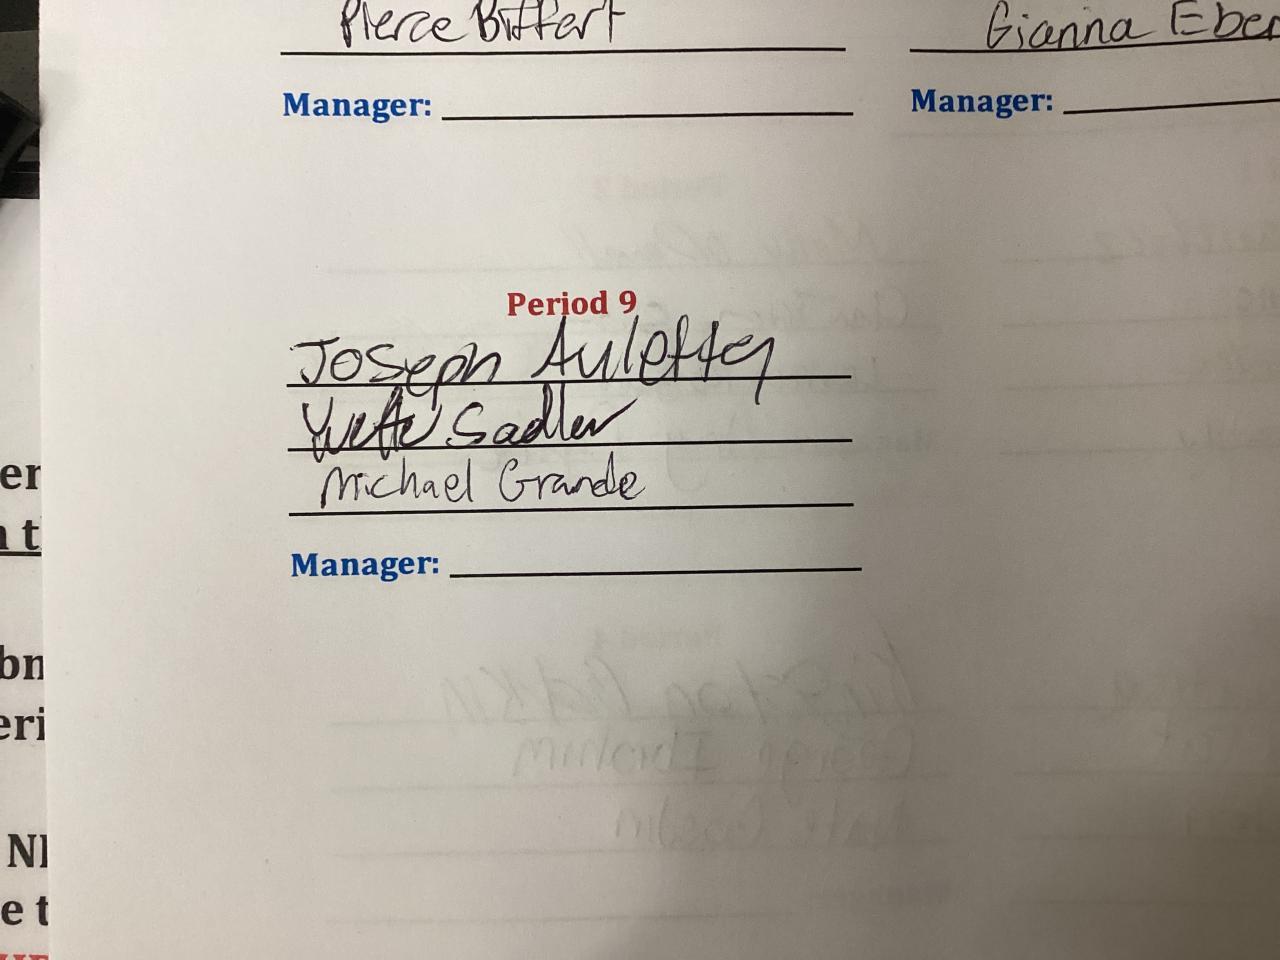 Pierce Biffert
Gianna Eber
Manager:
Manager:
Period 9
Joseph Auletta
Yvette Sadler
Michael Grande
Manager:
er
n t
bn
eri
NI
e t